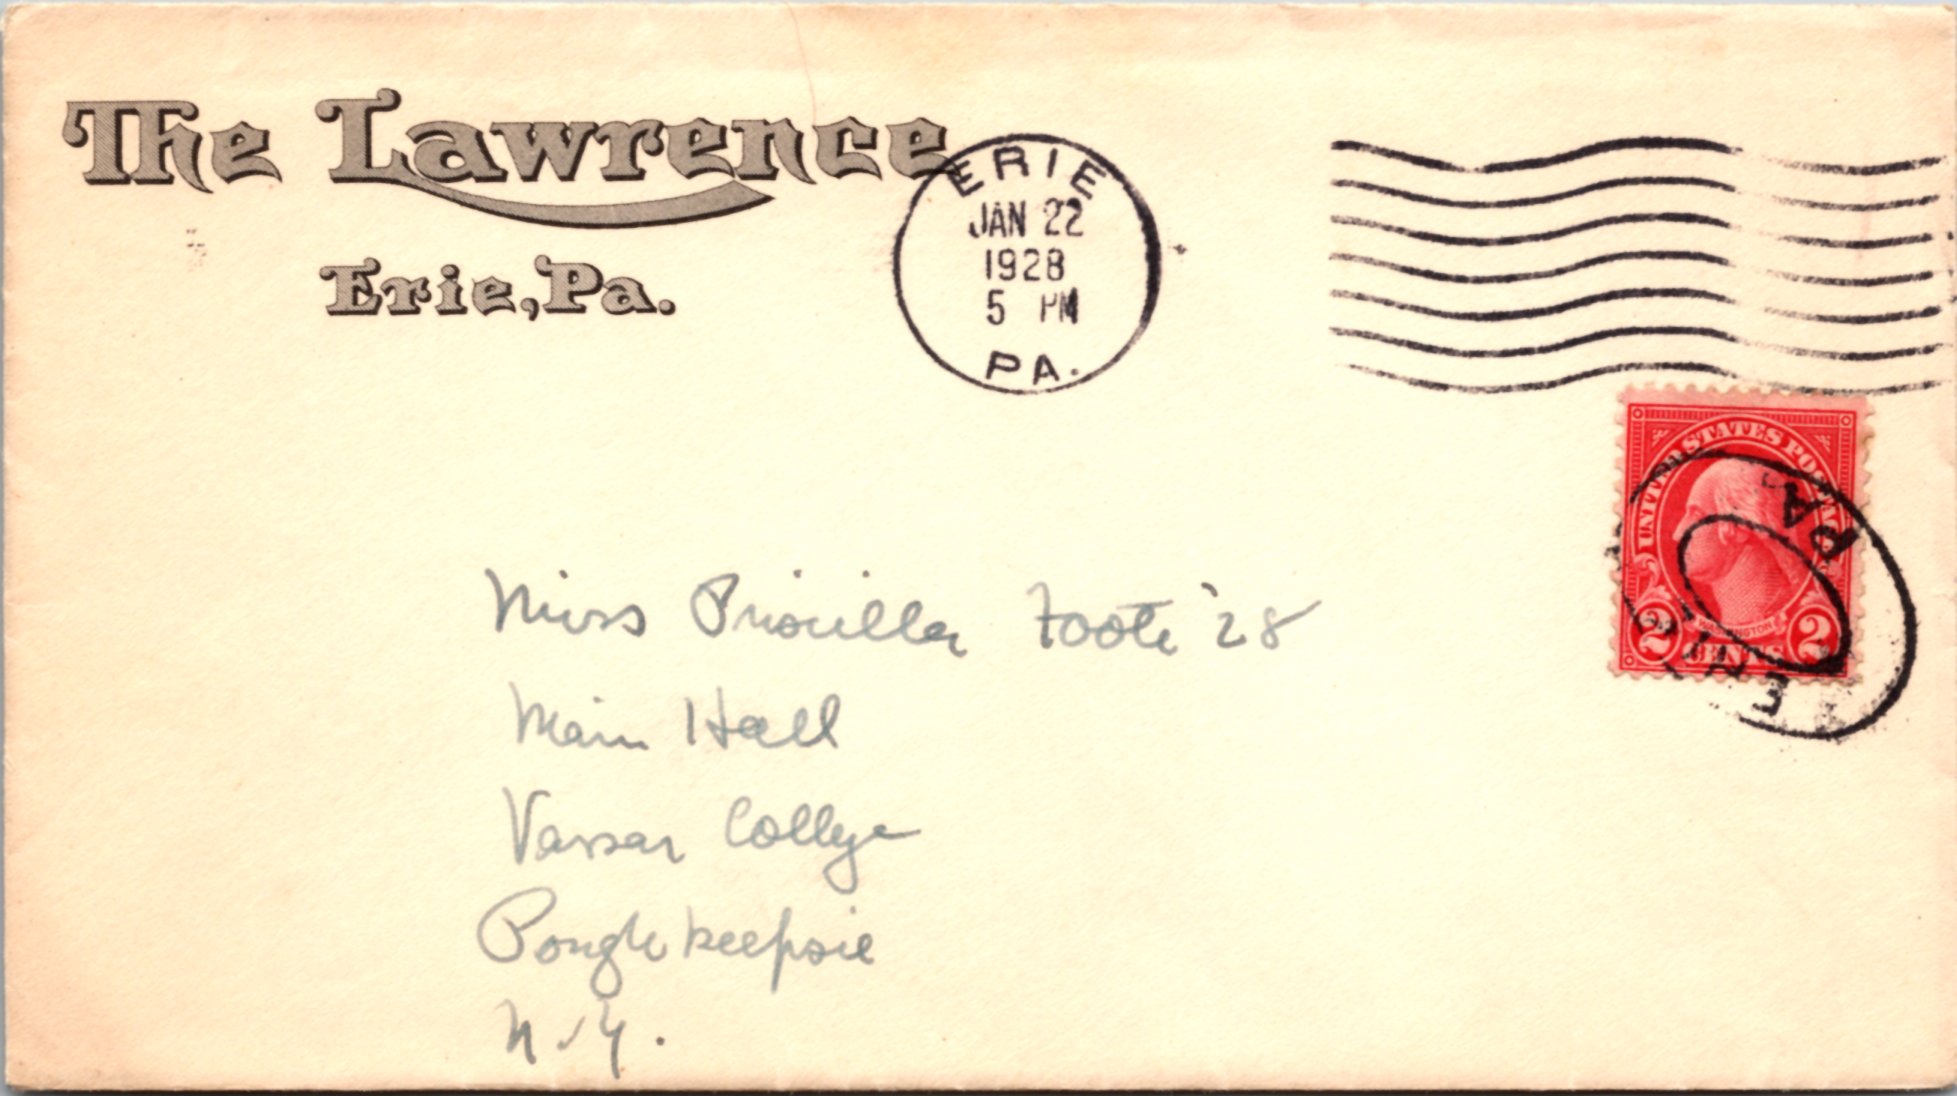 The Lawrence
Erie, Pa.
ERIE
JAN 22
1928
5 PM
PA.
UNITED STATES POSTAGE
WASHINGTON
2 CENTS 2
ERIE
PA
Miss Priscilla Foote '28
Main Hall
Vassar College
Poughkeepsie
N.Y.